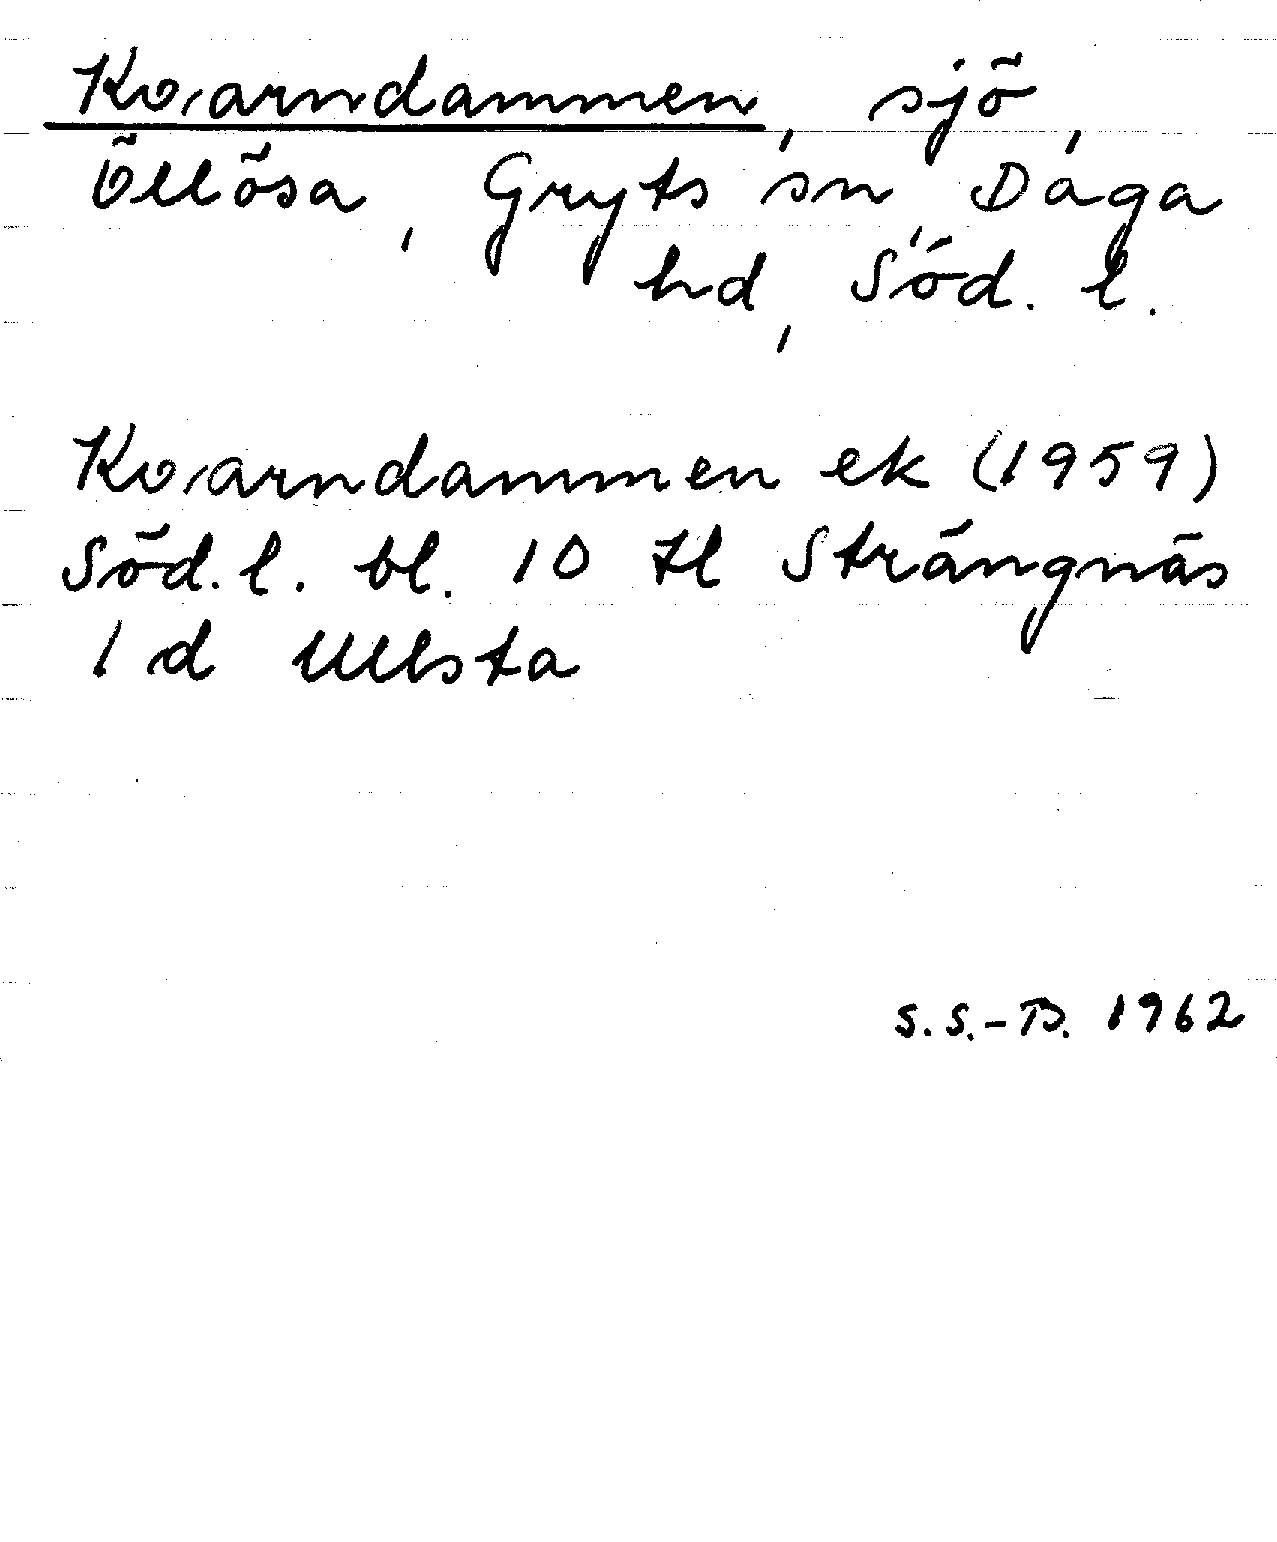 Kvarndammen, sjö,
Öllösa, Gryts sn, Daga
hd, Söd. l.
Kvarndammen ek (1959)
Söd. l. bl. 10 tl Strängnäs
1 d Ullsta
S. S.-B. 1962